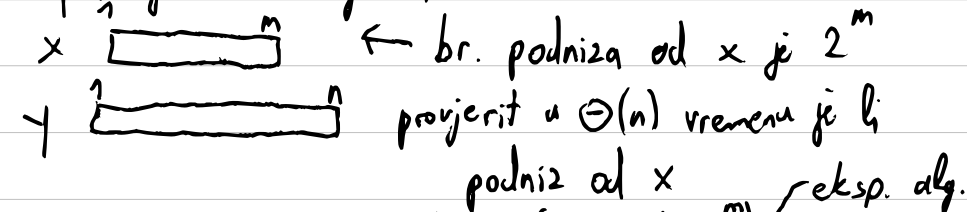 1 m
x ← br. podniza od x je 2^m
1 n
y provjerit u Θ(n) vremenu je li
podniz od x
eksp. alg.